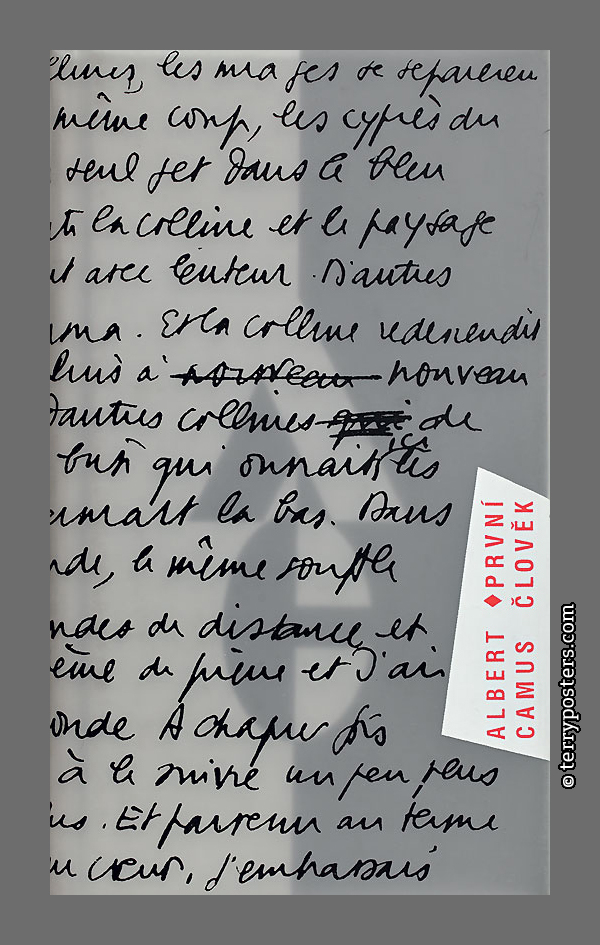 les nuages se séparèrent
même coup, les cyprès du
seul jet dans le bleu
la colline et le paysage
avec lenteur. D'autres
Et la colline redescendit
à nouveau nouveau
D'autres collines de
qui
là bas. Dans
le même souffle
de distance, et
de pierre et d'air
A chaque fois
à le suivre un peu plus
Et parvenu au terme
cœur, j'embrassais
ALBERT ◆ PRVNÍ
CAMUS ČLOVĚK
© terryposters.com